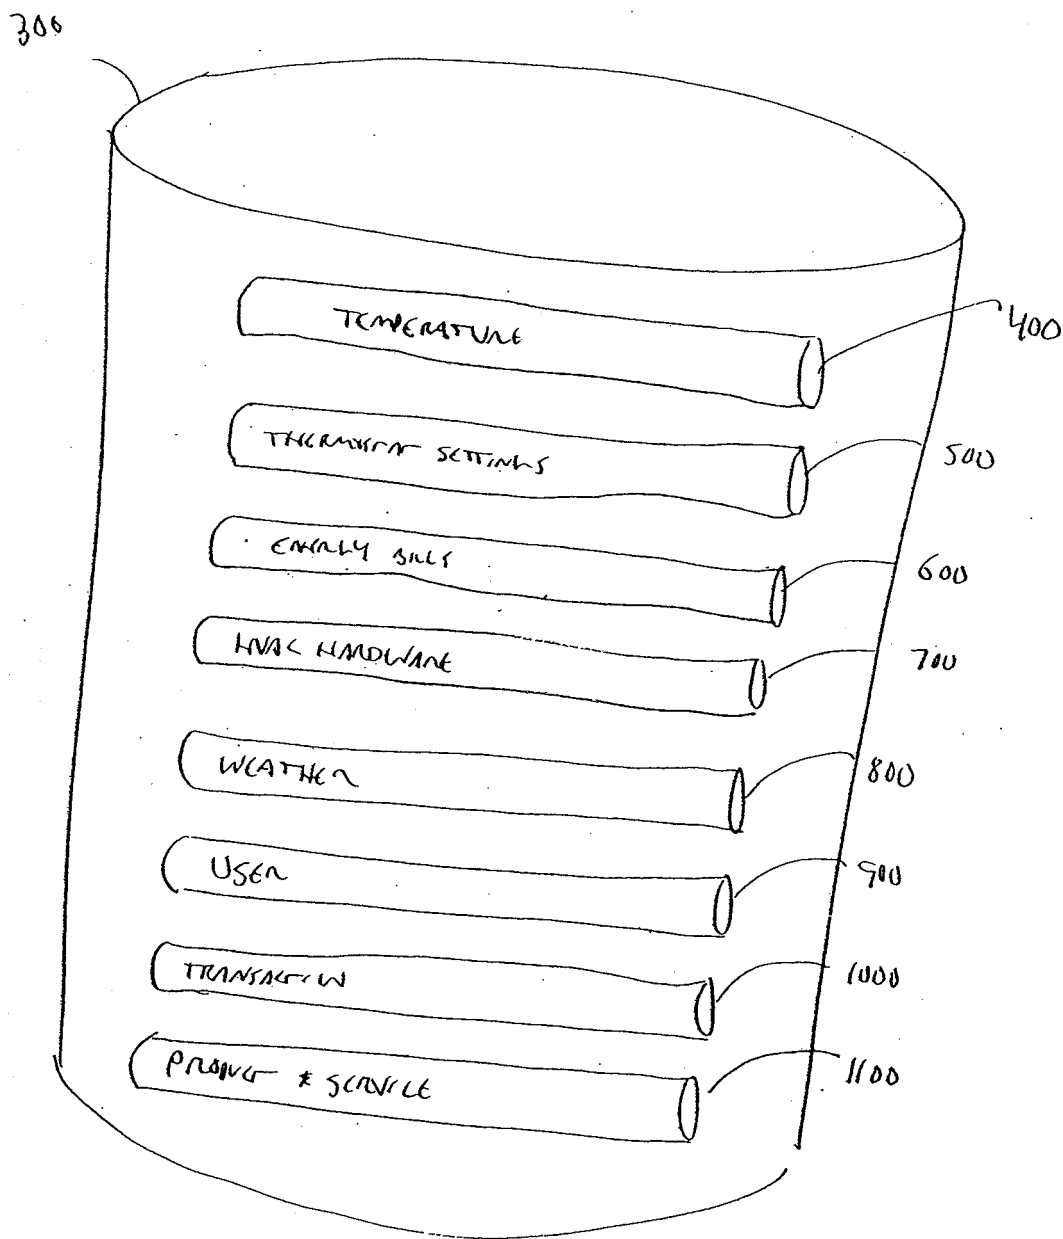 300
TEMPERATURE
400
THERMOSTAT SETTINGS
500
ENERGY BILLS
600
HVAC HARDWARE
700
WEATHER
800
USER
900
TRANSACTION
1000
PRODUCT & SERVICE
1100